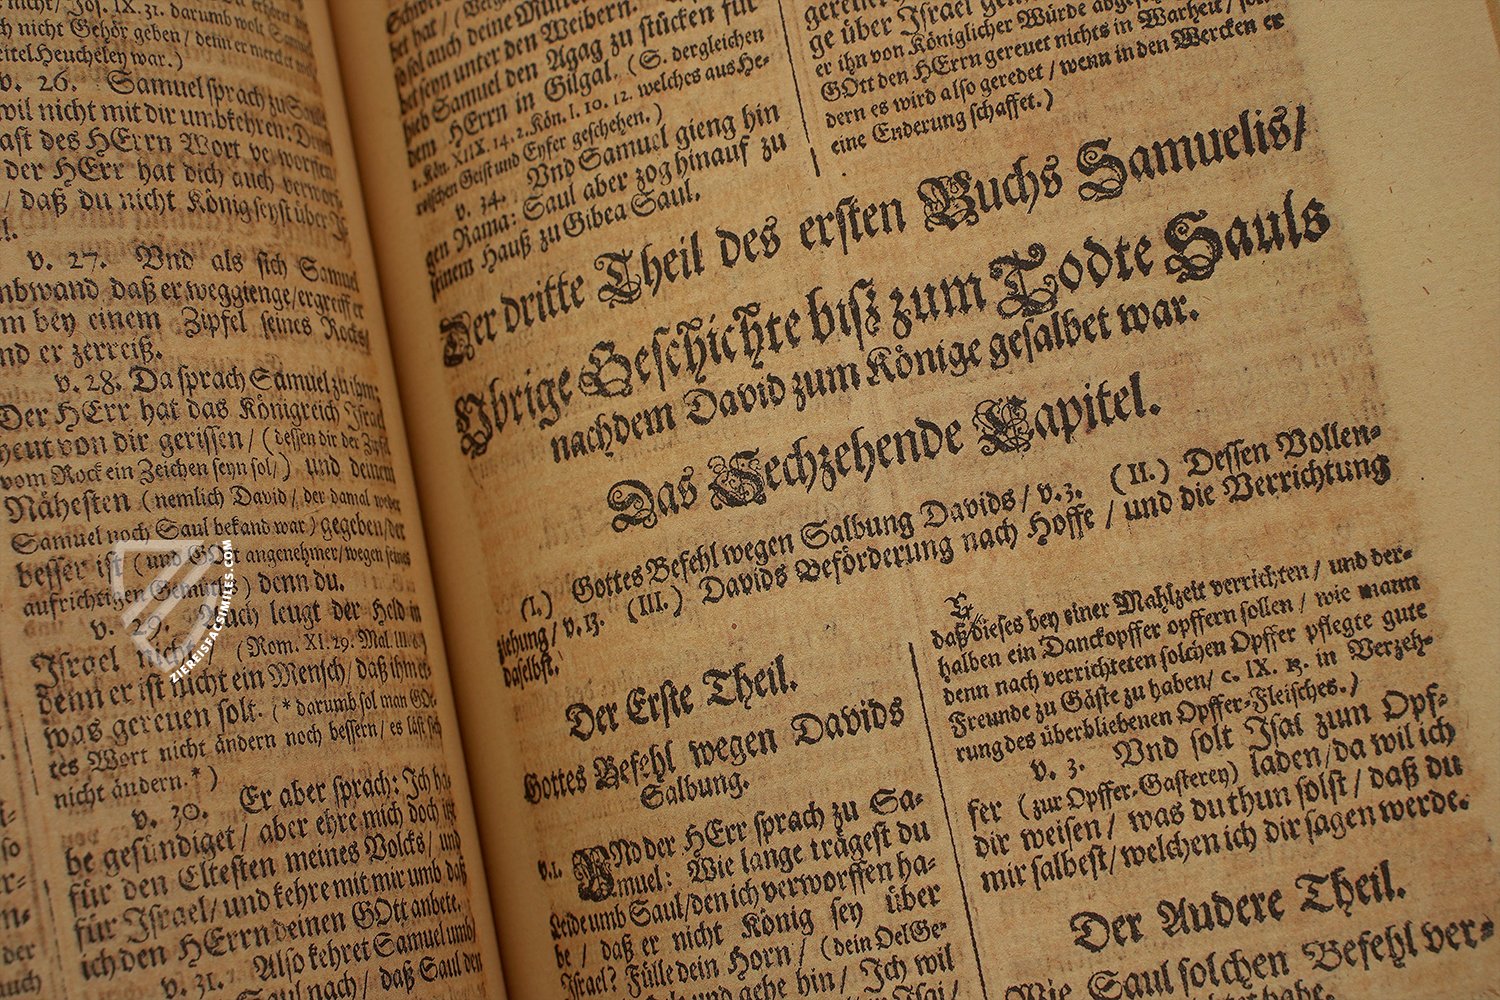 nicht/ Jos. IX. 31. darumb wolt Samuel
nicht Gehör geben/ denn er mercket
eitel Heucheley war.)
v. 26. Samuel sprach zu Saul
wil nicht mit dir umbkehren: Denn
hast des HErrn Wort verworffen/
der HErr hat dich auch verworf-
/ daß du nicht König seyst über
v. 27. Vnd als sich Samuel
umbwand daß er weggienge/ ergreiff er
bey einem Zipfel seines Rocks/
und er zerreiß.
v. 28. Da sprach Samuel zu ihm:
Der HErr hat das Königreich Israel
heut von dir gerissen/ (dessen dir der Zipfel
vom Rock ein Zeichen seyn sol/) und deinem
Nähesten (nemlich David/ der damal weder
Samuel noch Saul bekand war) gegeben/ der
besser ist (und GOtt angenehmer/ wegen seines
aufrichtigen Gemüths) denn du.
v. 29. Auch leugt der Held in
Israel nicht (Rom. XI. 29. Mal. III. 6.)
denn er ist nicht ein Mensch/ daß ihm et-
was gereuen solt. (* darumb sol man GOt-
tes Wort nicht ändern noch bessern/ es läst sich
nicht ändern. *)
v. 30. Er aber sprach: Ich ha-
be gesündiget/ aber ehre mich doch itzt
für den Eltesten meines Volcks/ und
für Israel/ und kehre mit mir umb daß
ich den HErrn deinen GOtt anbete.
v. 31. Also kehret Samuel umb/
Saul nach/ daß Saul den
bet hat/
so sol auch deine Mutter
bet seyn unter den Weibern.
hieb Samuel den Agag zu stücken für
dem HErrn in Gilgal. (S. dergleichen
1. Kön. XIIX. 14. 2. Kön. I. 10. 12. welches aus He-
roischen Geist und Eyfer geschehen.)
v. 34. Vnd Samuel gieng hin
gen Rama: Saul aber zog hinauf zu
seinem Hauß zu Gibea Saul.
ge über Israel
er ihn von Königlicher Würde
GOtt den HErrn gereuet nichts in Warheit/
dern es wird also geredet/ wenn in den Wercken er
eine Enderung schaffet.)
Der dritte Theil des ersten Buchs Samuelis/
Vbrige Geschichte bisz zum Todte Sauls
nachdem David zum Könige gesalbet war.
Das Sechzehende Capitel.
(I.) Gottes Befehl wegen Salbung Davids/ v. 3. (II.) Dessen Vollen-
ziehung/ v. 13. (III.) Davids Beförderung nach Hoffe/ und die Verrichtung
daselbst.
Der Erste Theil.
Gottes Befehl wegen Davids
Salbung.
v. 1. VNd der HErr sprach zu Sa-
muel: Wie lange trägest du
Leide umb Saul/ den ich verworffen ha-
be/ daß er nicht König sey über
Israel? Fülle dein Horn/ (dein Oel Ge-
und gehe hin/ Ich wil
daß/ dieses bey einer Mahlzeit verrichten/ und der-
halben ein Danckopffer opffern sollen/ wie mann
denn nach verrichteten solchen Opffer pflegte gute
Freunde zu Gäste zu haben/ c. IX. 13. in Verzeh-
rung des überbliebenen Opffer-Fleisches.)
v. 3. Vnd solt Isai zum Opf-
fer (zur Opffer-Gasterey) laden/ da wil ich
dir weisen/ was du thun solst/ daß du
mir salbest/ welchen ich dir sagen werde.
Der Andere Theil.
Wie Saul solchen Befehl ver-
ZIEREISFACSIMILES.COM